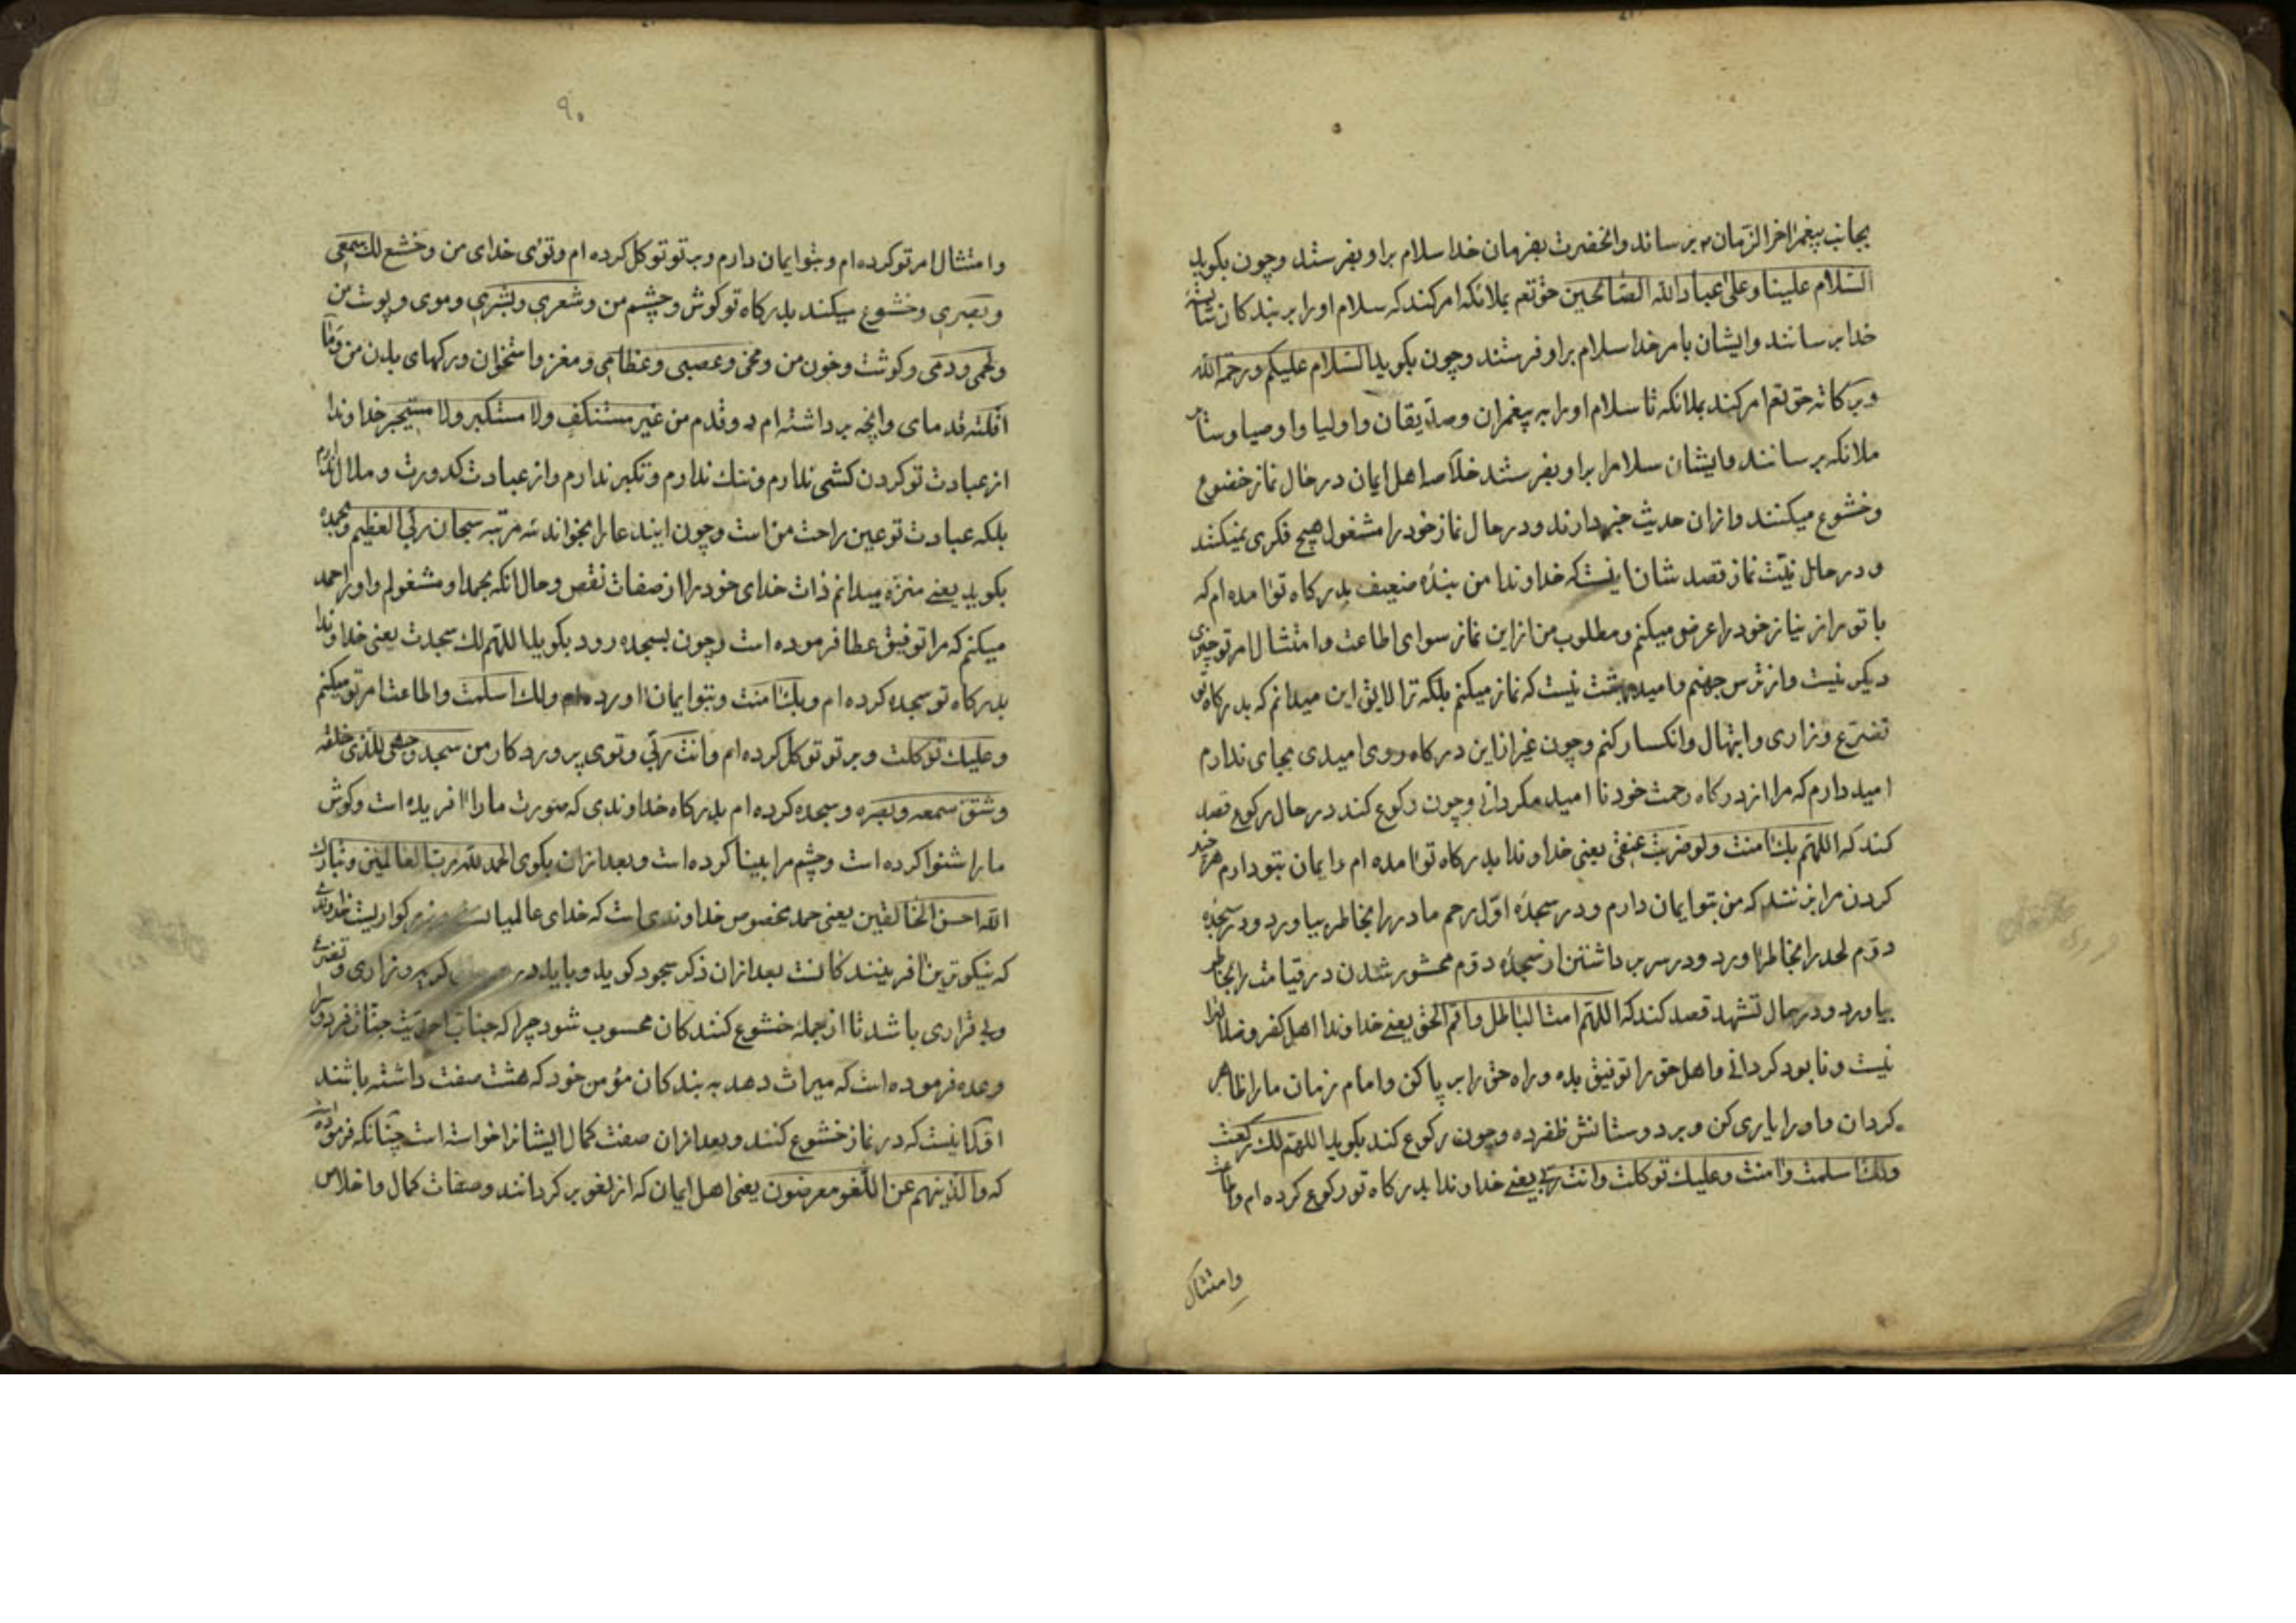 بجانب پیغمر اخر الزمان م برساند وانحضرت بفرمان خدا سلام براو بفرستد وچون بکوید
السّلام علینا وعلی عباد الله الصّالحین حق تعم بملائکه امر کند که سلام او را بر بندکان شایسته
خدا برسانند وایشان بامر خدا سلام براو فرستند وچون بکوید السّلام علیکم ورحمة الله
وبرکاته حق تعم امر کند بملائکه تا سلام او را بر پیغمران وصدّیقان واولیا واوصیا وسایر
ملائکه برسانند وایشان سلام را براو بفرستند خلاصه اهل ایمان در حال نماز خضوع
وخشوع میکنند وازان حدیث خبر دارند ودر حال نماز خود را مشغول هیچ فکری نمیکنند
ودر حال نیّت نماز قصد شان اینست که خداوندا من بندهٔ ضعیف بدرکاه تو امده ام که
با تو راز نیاز خود را عرض میکنم ومطلوب من از این نماز سوای اطاعت وامتثال امر تو چیزی
دیکر نیست واز ترس جهنم وامید بهشت نیست که نماز میکنم بلکه ترا لایق این میدانم که بدرکاه تو
تضرّع وزاری وابتهال وانکسار کنم وچون غیر از این درکاه روی امیدی بجای ندارم
امید دارم که مرا از درکاه رحمت خود نا امید مکردانی وچون رکوع کند در حال رکوع قصد
کند که اللهمّ بک امنت ولو ضربت عنقی یعنی خداوندا بدرکاه تو امده ام وایمان بتو دارم هر چند
کردن مرا بزنند که من بتو ایمان دارم ودر سجدهٔ اوّل رحم مادر را بخاطر بیاورد ودر سجدهٔ
دوّم لحد را بخاطر اورد ودر سر برداشتن از سجدهٔ دوّم محشور شدن در قیامت را بخاطر
بیاورد ودر حال تشهد قصد کند که اللهمّ امت الباطل واقم الحق یعنی خداوندا اهل کفر وضلال را
نیست ونابود کردانی واهل حق را توفیق بده وراه حق را بر پا کن وامام زمان ما را ظاهر
کردان واو را یاری کن وبر دوستانش ظفر ده وچون رکوع کند بکوید اللهمّ لک رکعت
ولک اسلمت وامنت وعلیک توکلت وانت ربّی یعنی خداوندا بدرکاه تو رکوع کرده ام
وامتثال
۹۰
وامتثال امر تو کرده ام وبتو ایمان دارم وبه تو توکل کرده ام وتوئی خدای من وخشع لک سمعی
وبصری وخشوع میکند بدرکاه تو کوش وچشم من وشعری وبشری وموی وپوست من
ولحمی ودمی وکوشت وخون من ومخی وعصبی وعظامی ومغز واستخوان ورکهای بدن من وما
اقلته قدمای وانچه برداشته ام دو قدم من غیر مستنکف ولا مستکبر ولا مستحسر خداوندا
از عبادت تو کردن کشی ندارم وننک ندارم وتکبر ندارم واز عبادت کدورت وملال ندارم
بلکه عبادت تو عین راحت من است وچون ایند عا را بخواند سه مرتبه سبحان ربّی العظیم وبحمده
بکوید یعنی منزّه میدانم ذات خدای خود را از صفات نقص وحال انکه بحمد او مشغولم واو را حمد
میکنم که مرا توفیق عطا فرموده است وچون بسجده رود بکوید اللهمّ لک سجدت یعنی خداوندا
بدرکاه تو سجده کرده ام وبک امنت وبتو ایمان اورده ام ولک اسلمت واطاعت امر تو میکنم
وعلیک توکلت وبر تو توکل کرده ام وانت ربّی وتوی پروردکار من سجد وجهی للذی خلقه
وشقّ سمعه وبصره وسجده کرده ام بدرکاه خداوندی که صورت ما را افریده است وکوش
ما را شنوا کرده است وچشم مرا بینا کرده است وبعد ازان بکوی الحمد لله ربّ العالمین وتبارک
الله احسن الخالقین یعنی حمد مخصوص خداوندی است که خدای عالمیان
که نیکوترین افرینندکانست بعد ازان ذکر سجود کوید وباید در وزاری وتضرّع
وبی قراری باشد تا از جمله خشوع کنندکان محسوب شود چرا که جناب احدیّت جنّات فردوس را
وعده فرموده است که میراث دهد به بندکان مؤمن خود که هشت صفت داشته باشند
اوّل اینست که در نماز خشوع کنند وبعد ازان صفت کمال ایشانرا خواسته است چنانکه فرموده است
که والذینهم عن اللّغو معرضون یعنی اهل ایمان که از لغو بر کردانند وصفات کمال واخلاص